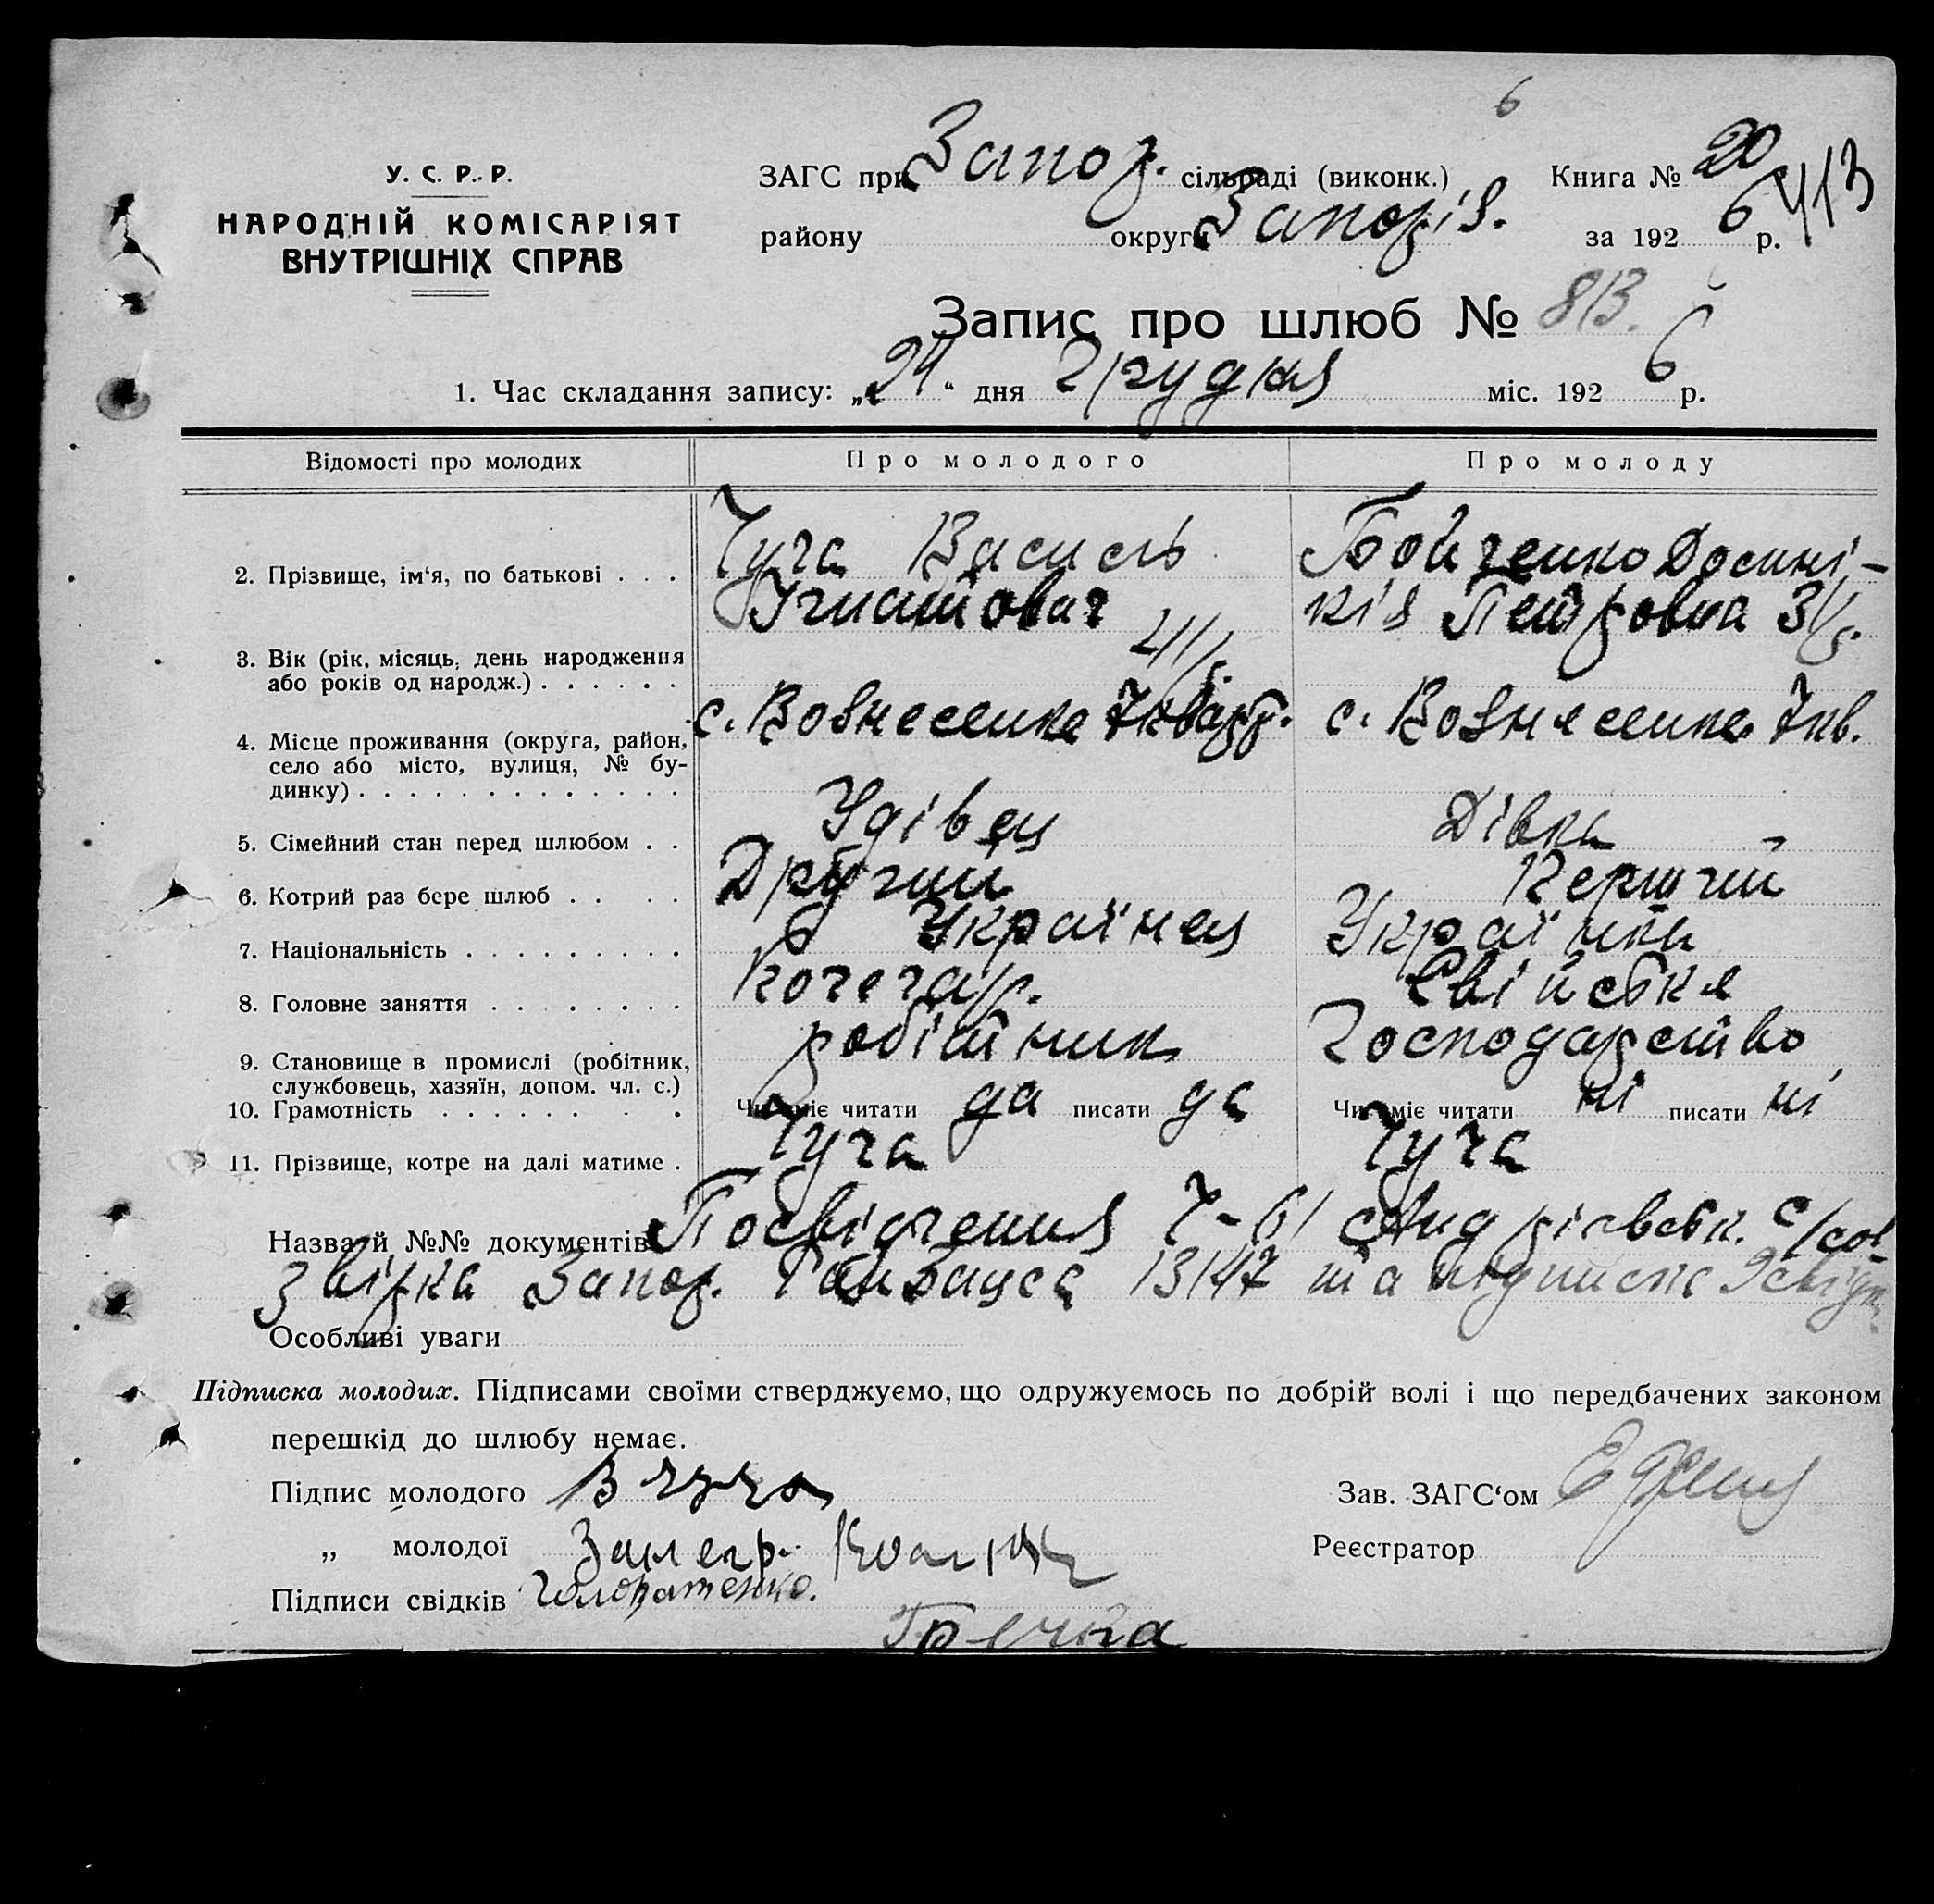 6
У. С. Р. Р.
НАРОДНІЙ КОМІСАРІЯТ
ВНУТРІШНІХ СПРАВ
ЗАГС при Запор. сільраді (виконк.) Книга № 20
району округи Запоріз. за 192 6 р.
413
Запис про шлюб № 813.
1. Час складання запису: „24“ дня Грудня міс. 192 6 р.
Відомості про молодих Про молодого Про молоду
2. Прізвище, ім‘я, по батькові . . . Чуча Василь Бойченко Домні-
Ігнатович кія Петровна
3. Вік (рік, місяць, день народження
або років од народж.) . . . . . .
4. Місце проживання (округа, район, с. Вознесенка 7 кварт. с. Вознесенка 7 кв.
село або місто, вулиця, № бу-
динку) . . . . . . . . . . . . .
5. Сімейний стан перед шлюбом . . Удівец Дівка
6. Котрий раз бере шлюб . . . . Другий Перший
7. Національність . . . . . . . . . Українец Українка
8. Головне заняття . . . . . . . . Кочегар. Свійске
9. Становище в промислі (робітник, робітник Господарство
службовець, хазяїн, допом. чл. с.)
10. Грамотність . . . . . . . . Чи вміє читати да писати да Чи вміє читати ні писати ні
11. Прізвище, котре на далі матиме . Чуча Чуча
Назва й №№ документів Посвідчення с/сов
звірка Запор. 13147 та підписка
Особливі уваги
Підписка молодих. Підписами своїми стверджуємо, що одружуємось по добрій волі і що передбачених законом
перешкід до шлюбу немає.
Підпис молодого В Чуча Зав. ЗАГС‘ом
„ молодої Реєстратор
Підписи свідків
Гречка